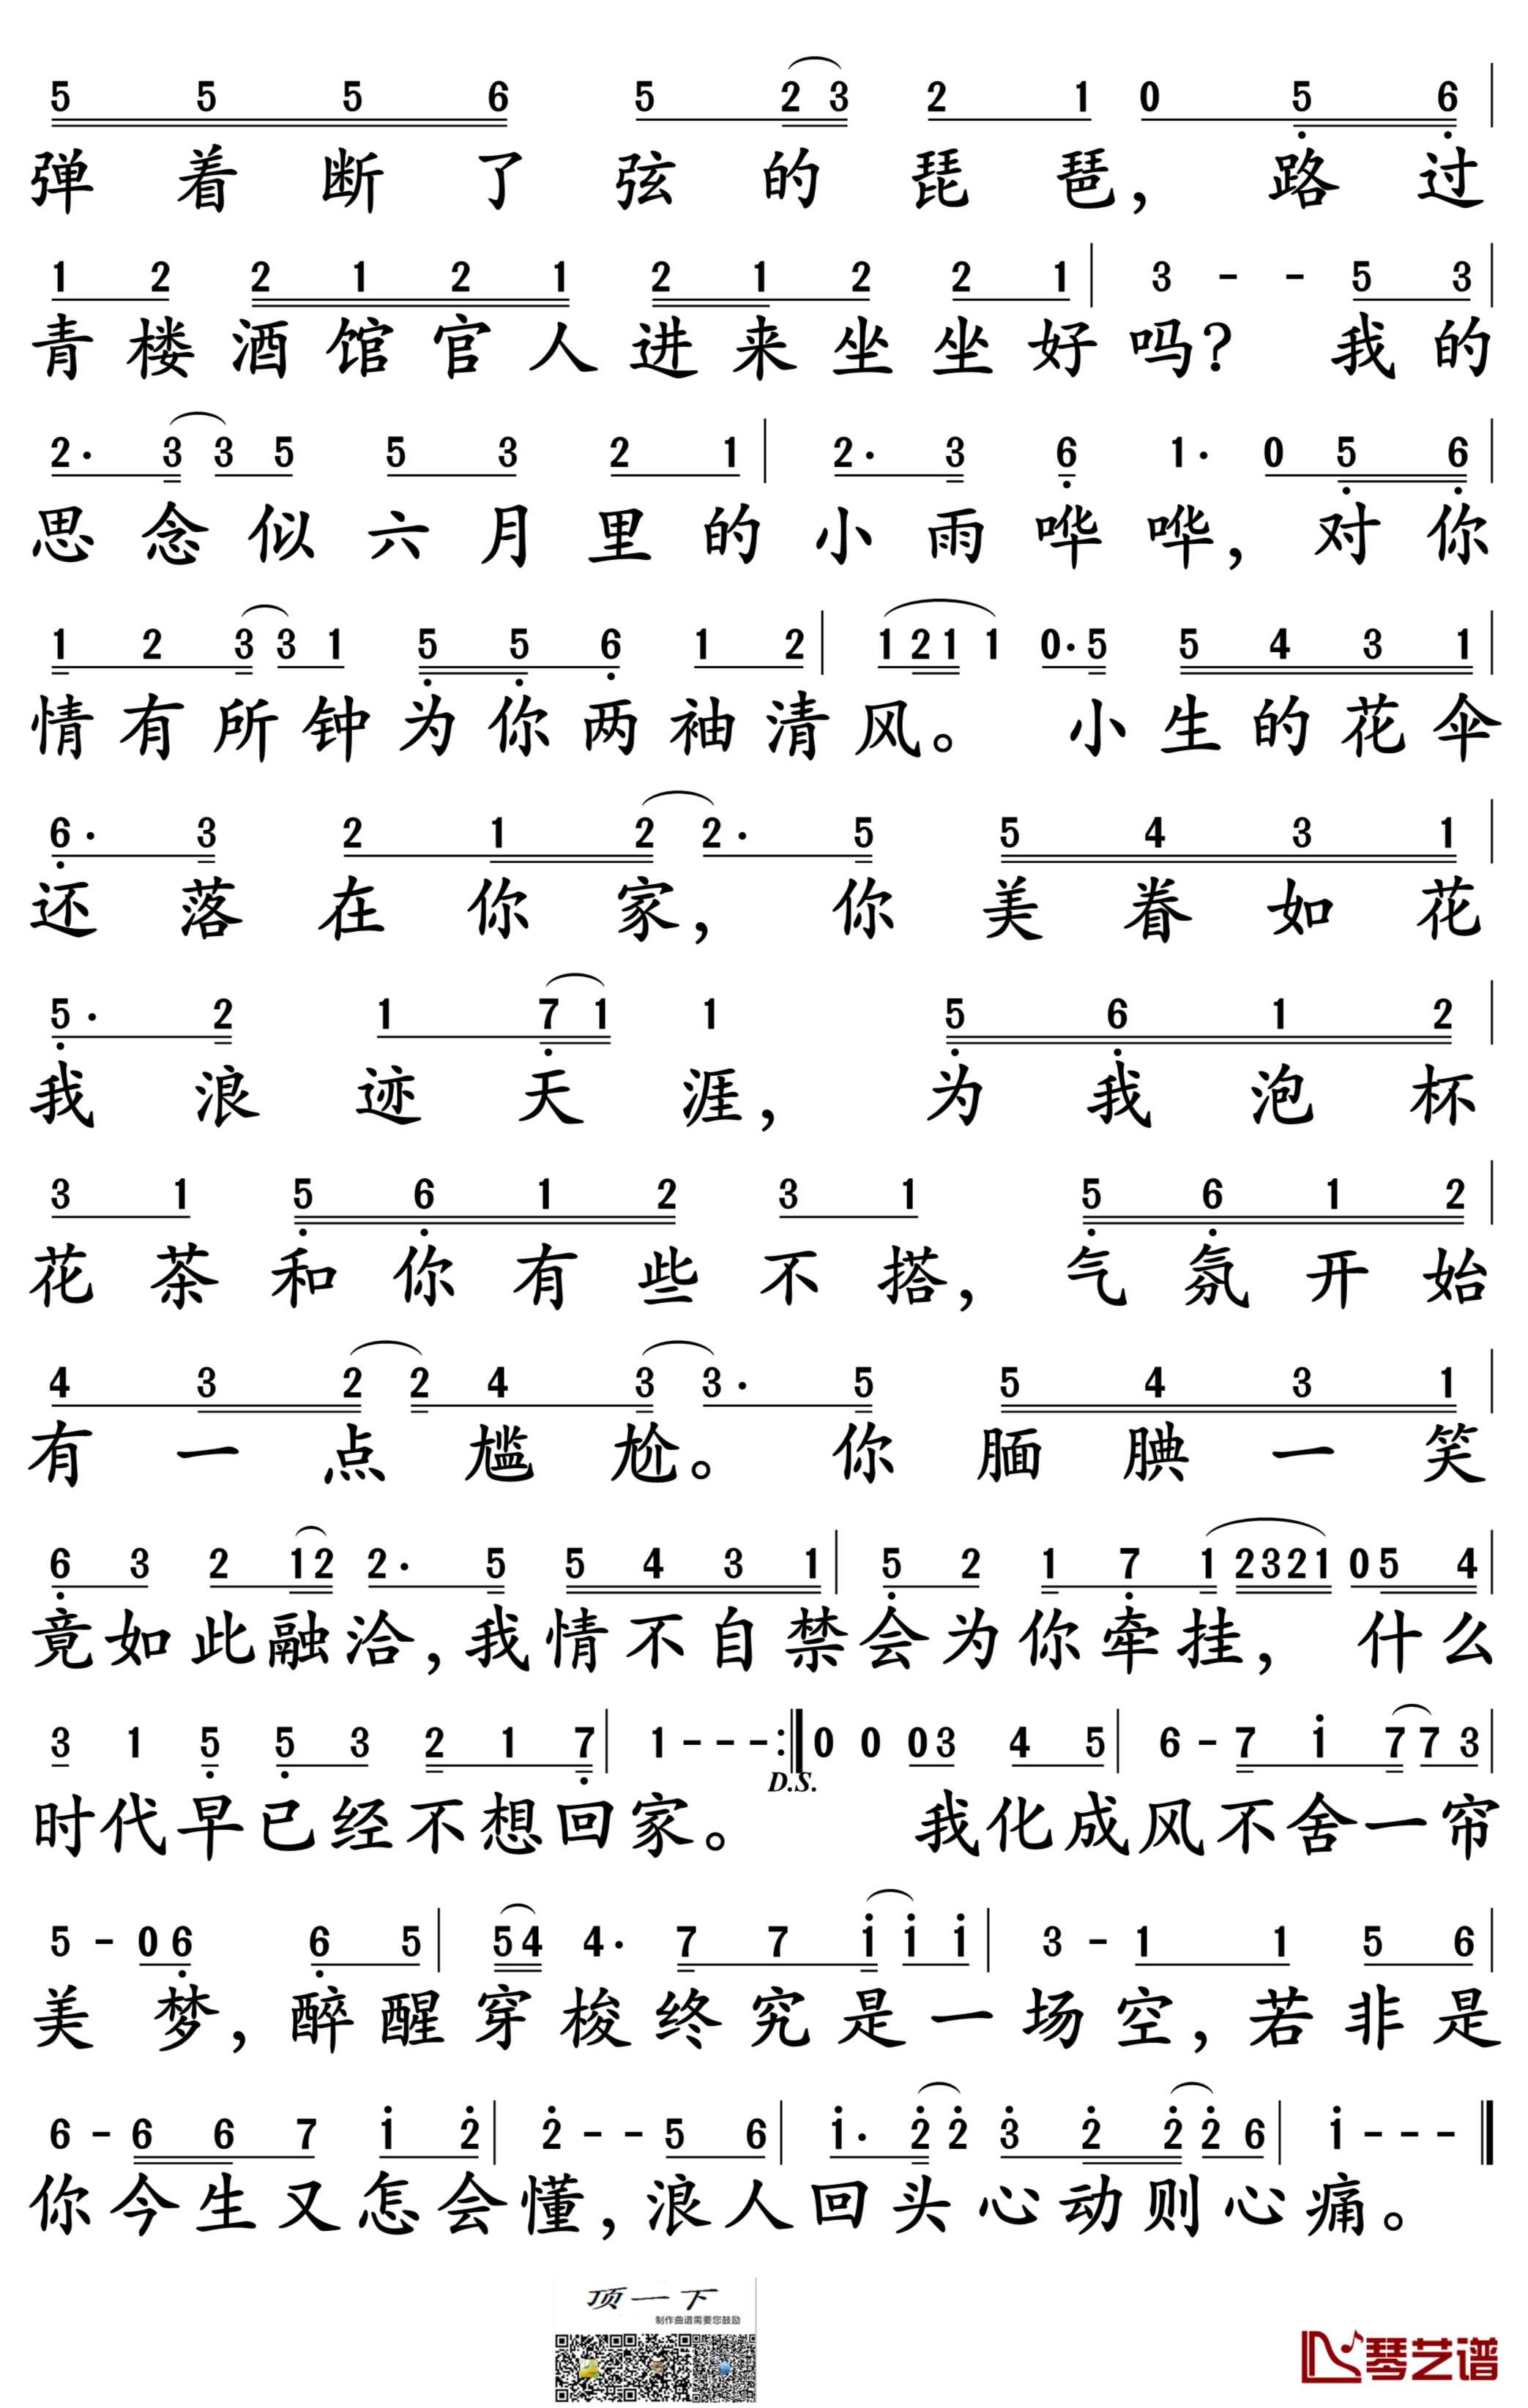 5 5 5 6 5 2 3 2 1 0 5 6
弹着断了弦的琵琶，路过
1 2 2 1 2 1 2 1 2 2 1 3 - - 5 3
青楼酒馆官人进来坐坐好吗？我的
2· 3 3 5 5 3 2 1 2· 3 6 1· 0 5 6
思念似六月里的小雨哗哗，对你
1 2 3 3 1 5 5 6 1 2 1 2 1 1 0· 5 5 4 3 1
情有所钟为你两袖清风。小生的花伞
6· 3 2 1 2 2· 5 5 4 3 1
还落在你家，你美眷如花
5· 2 1 7 1 1 5 6 1 2
我浪迹天涯，为我泡杯
3 1 5 6 1 2 3 1 5 6 1 2
花茶和你有些不搭，气氛开始
4 3 2 2 4 3 3· 5 5 4 3 1
有一点尴尬。你腼腆一笑
6 3 2 1 2 2· 5 5 4 3 1 5 2 1 7 1 2 3 2 1 0 5 4
竟如此融洽，我情不自禁会为你牵挂，什么
3 1 5 5 3 2 1 7 1 - - - :‖ 0 0 0 3 4 5 6 - 7 1 7 7 3
D.S.
时代早已经不想回家。我化成风不舍一帘
5 - 0 6 6 5 5 4 4· 7 7 1 1 1 3 - 1 1 5 6
美梦，醉醒穿梭终究是一场空，若非是
6 - 6 6 7 1 2 2 - - 5 6 1· 2 2 3 2 2 2 6 1 - - -
你今生又怎会懂，浪人回头心动则心痛。
顶一下
制作曲谱需要您鼓励
琴艺谱